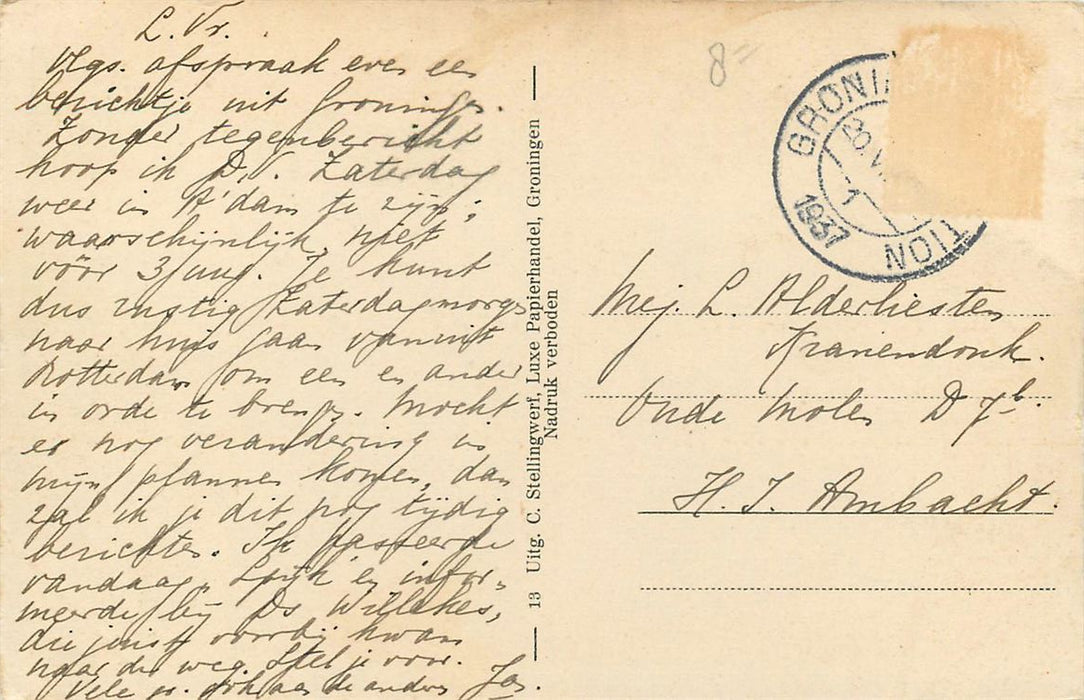 L. Vr.
Vlgs. afspraak even een
berichtje uit Groningen.
Zonder tegenbericht
hoop ik D.V. Zaterdag
weer in A'dam te zijn;
waarschijnlijk niet
vóór 3 Aug. Je kunt
dus rustig Zaterdagmorgen
naar huis gaan vanuit
Rotterdam om een en ander
in orde te brengen. Mocht
er nog verandering in
mijn plannen komen, dan
zal ik je dit nog tijdig
berichten. Ik passeerde
vandaag Spijk en infor-
meerde bij Ds Willekes,
die juist voorbij kwam
naar de weg. Stel je voor.
Vele gr. ook aan de anderen Jas.
13 Uitg. C. Stellingwerf, Luxe Papierhandel, Groningen
Nadruk verboden
8=
GRONIN
20.VI
1
1937
TION
Mej. L. Alderliesten
Kranendonk.
Oude Molen D 7b.
H. I. Ambacht.